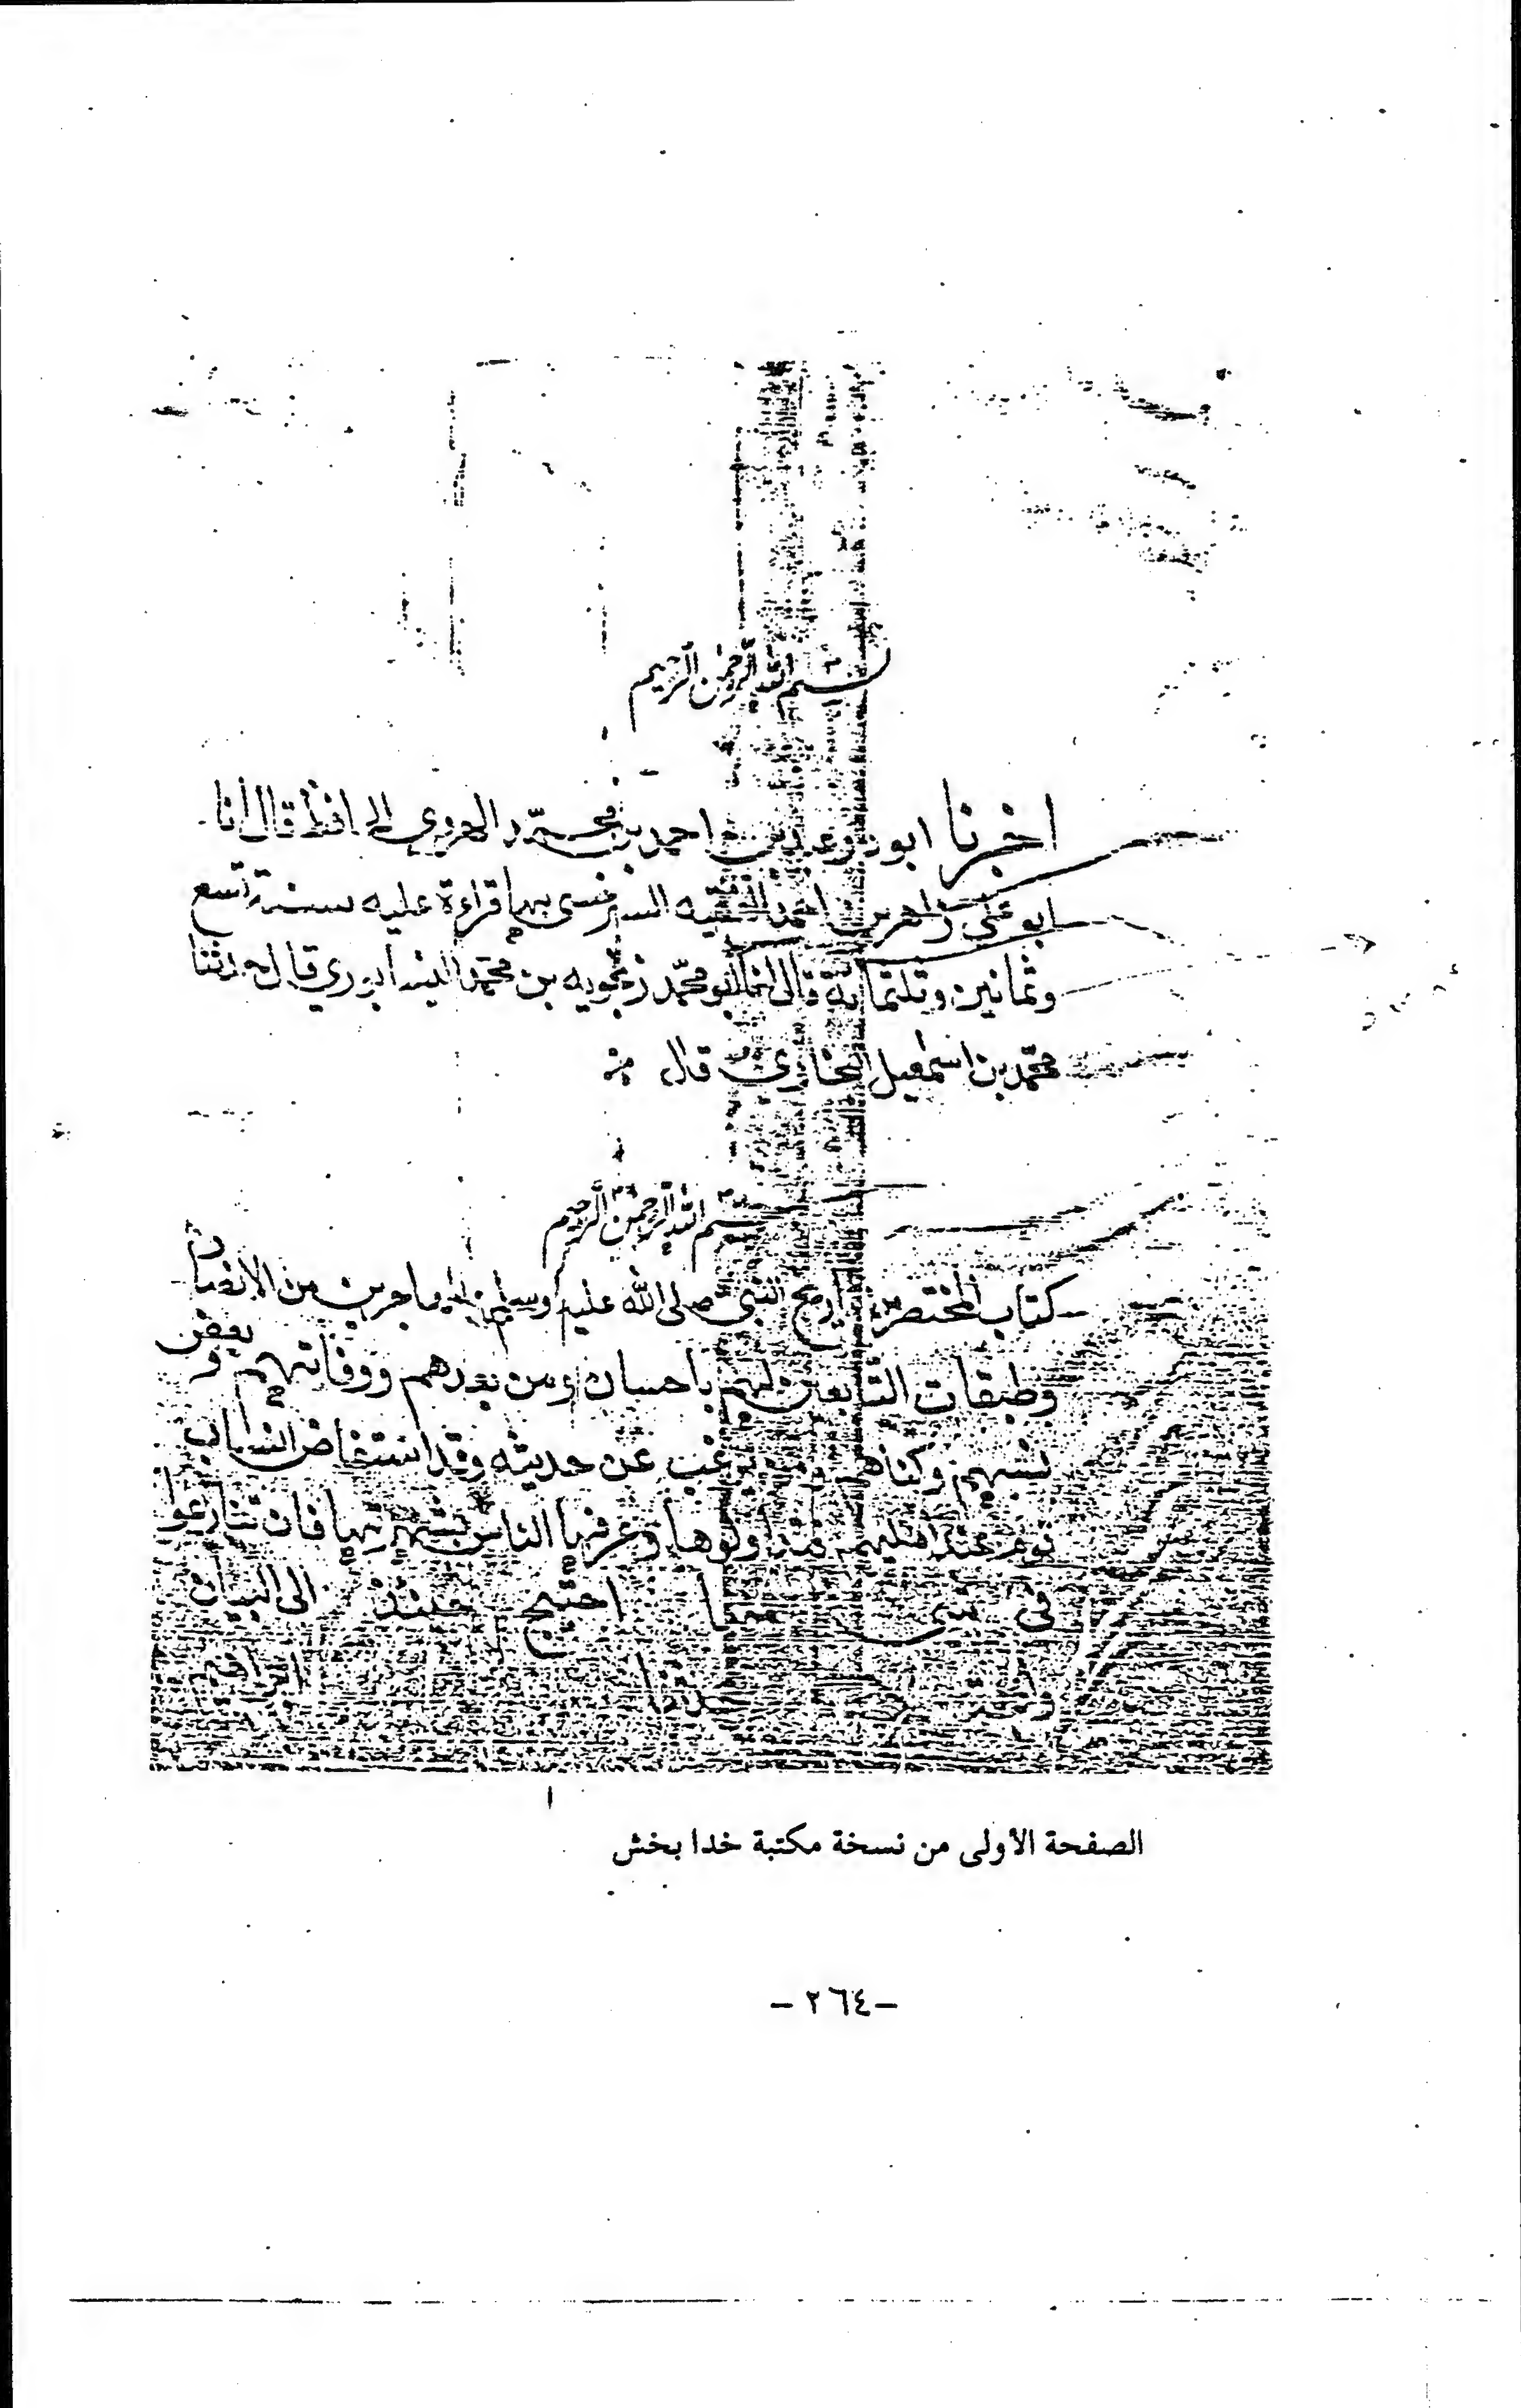 بسم الله الرحمن الرحيم
اخبرنا ابوذر عبد بن احمد بن محمد الهروي الحافظ قال انا
ابو علي زاهر بن احمد الفقيه السرخسي بها قراءة عليه سنة تسع
وثمانين وثلثمائة قال ابو محمد زنجويه بن محمد النيسابوري قال حدثنا
محمد بن اسمعيل البخاري قال
بسم الله الرحمن الرحيم
كتاب المختصر من تاريخ النبي صلى الله عليه وسلم والمهاجرين من الانصار
وطبقات التابعين لهم باحسان ومن بعدهم ووفاتهم وبعض
نسبهم وكناهم ومن يرغب عن حديثه وقد استفاض انساب
قوم عند اهليهم وتداولوها وعرفها الناس بشهرتها فان تنازعوا
في شيء منها احتيج حينئذ الى البيان
الصفحة الأولى من نسخة مكتبة خدا بخش
-٢٦٤-